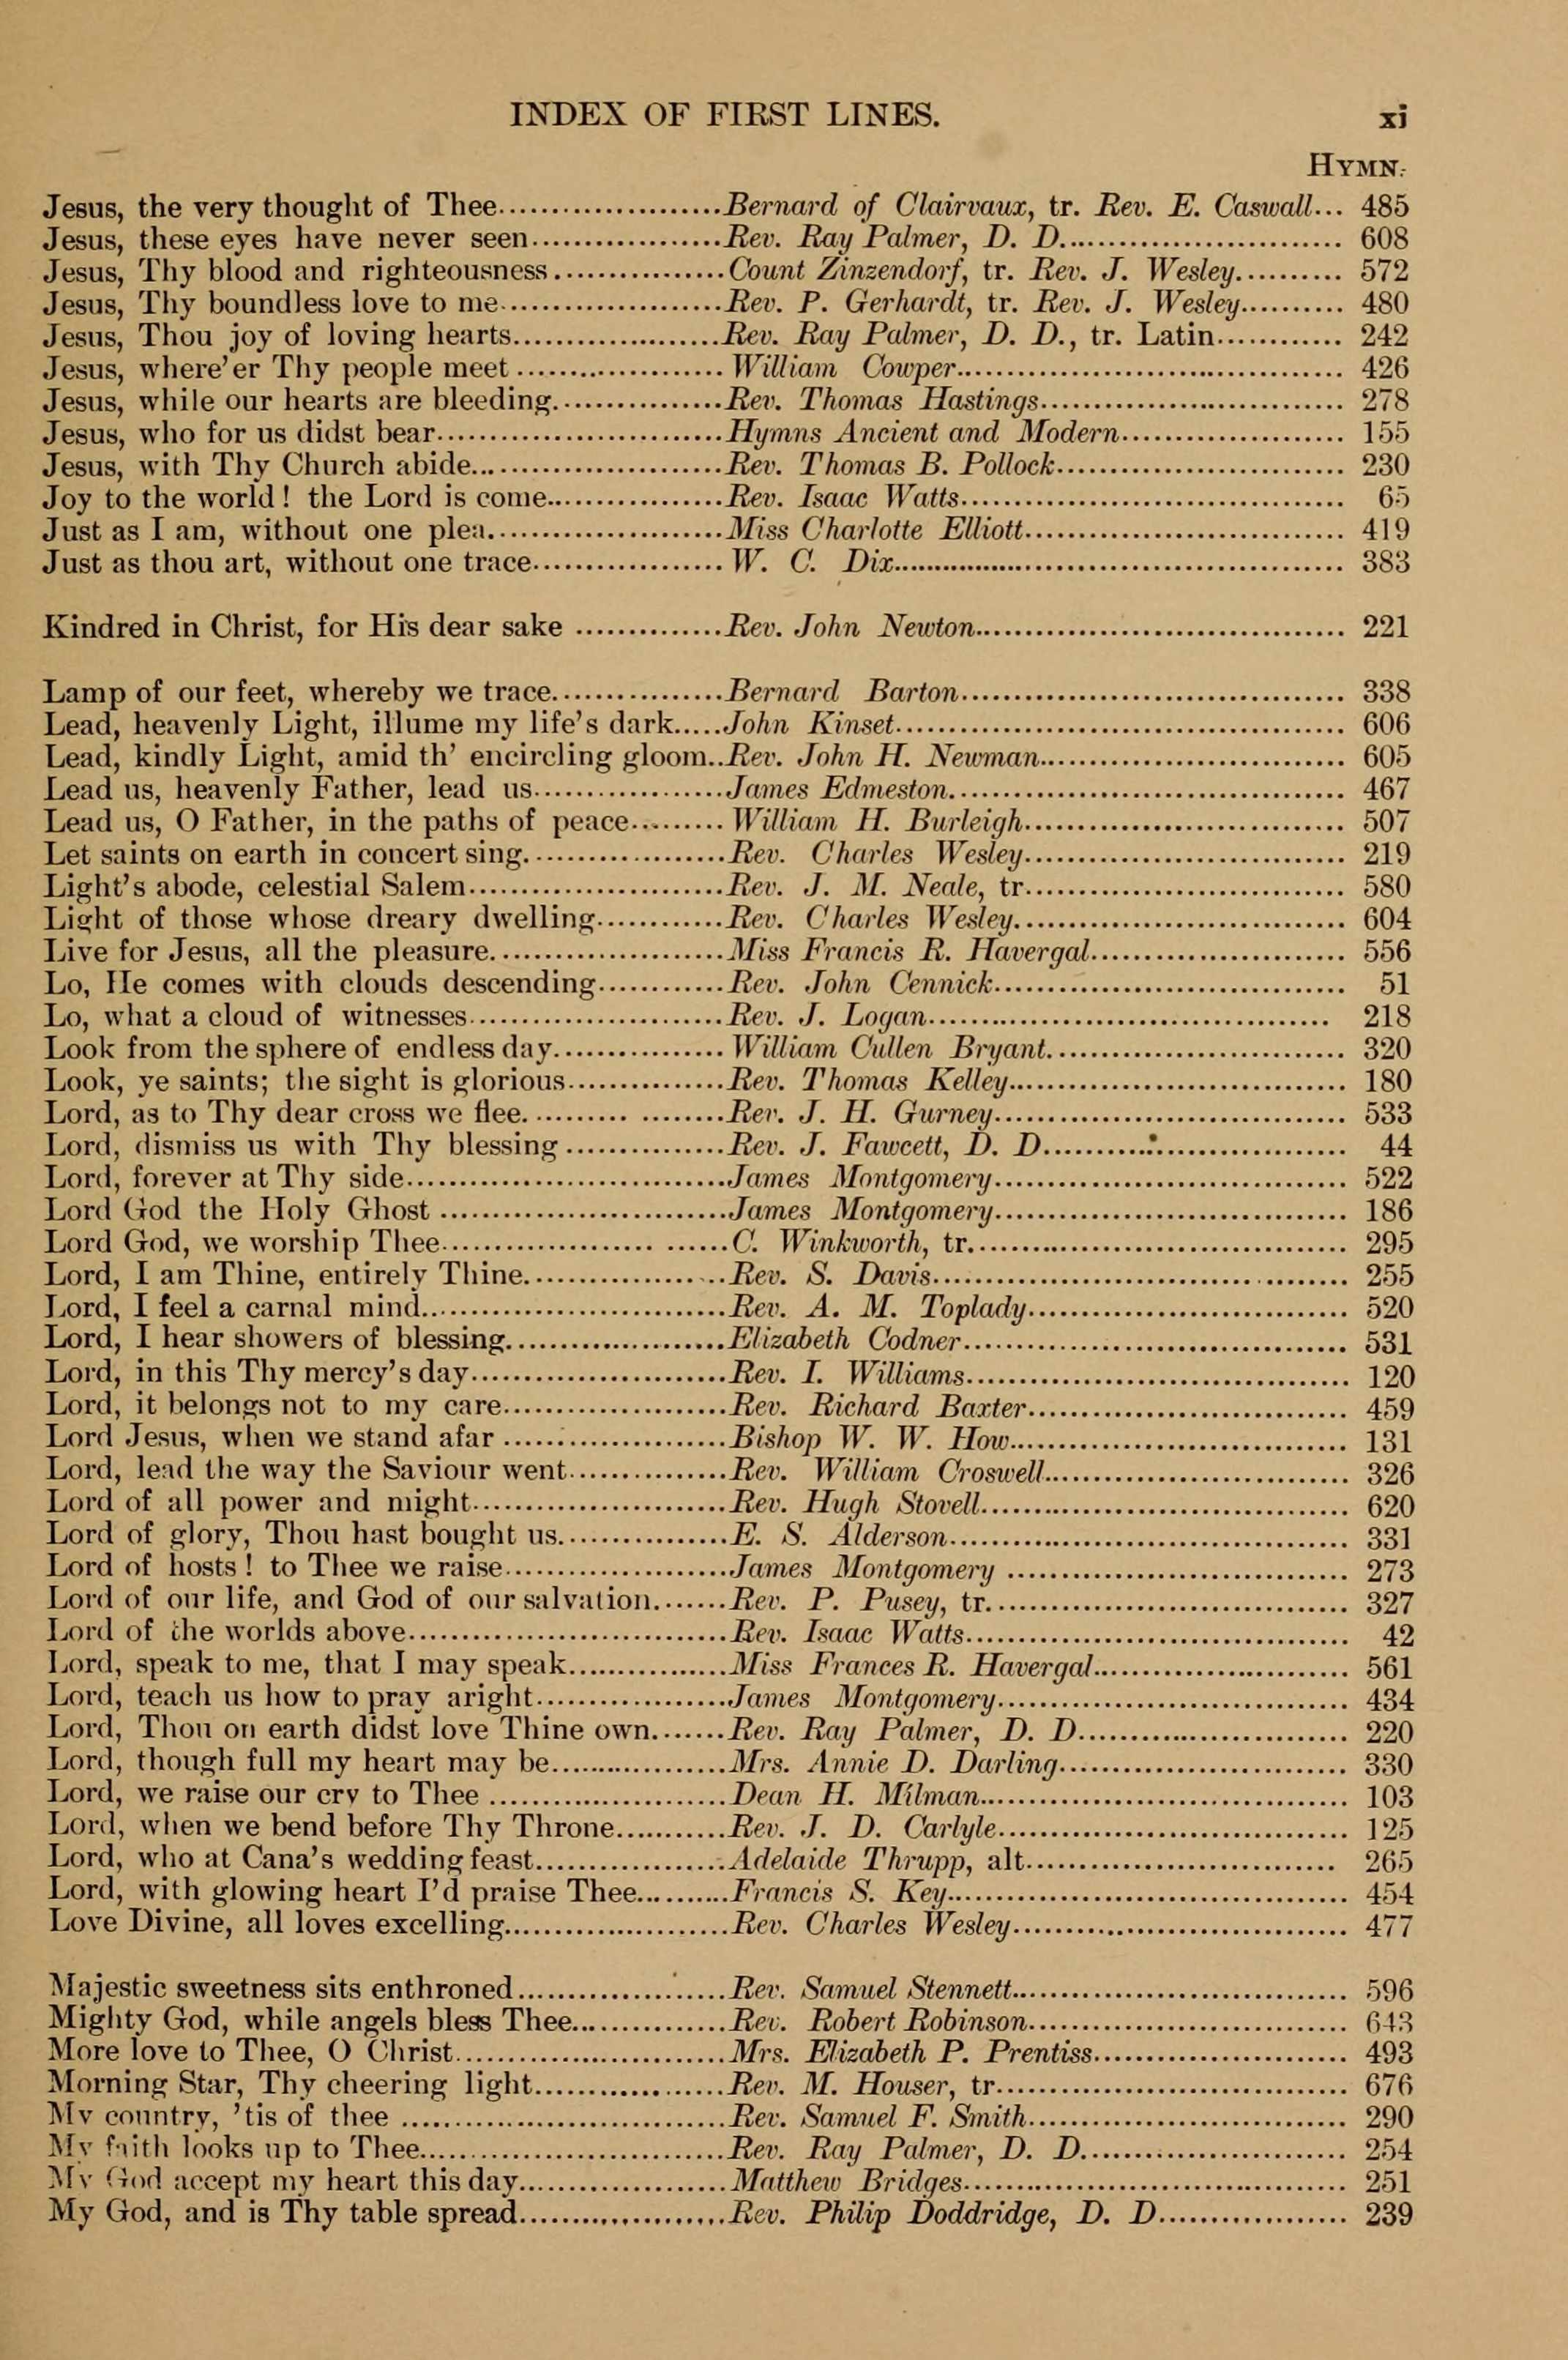 INDEX OF FIRST LINES. xi
HYMN.
Jesus, the very thought of Thee......Bernard of Clairvaux, tr. Rev. E. Caswall... 485
Jesus, these eyes have never seen......Rev. Ray Palmer, D. D...... 608
Jesus, Thy blood and righteousness......Count Zinzendorf, tr. Rev. J. Wesley...... 572
Jesus, Thy boundless love to me......Rev. P. Gerhardt, tr. Rev. J. Wesley...... 480
Jesus, Thou joy of loving hearts......Rev. Ray Palmer, D. D., tr. Latin...... 242
Jesus, where'er Thy people meet......William Cowper...... 426
Jesus, while our hearts are bleeding......Rev. Thomas Hastings...... 278
Jesus, who for us didst bear......Hymns Ancient and Modern...... 155
Jesus, with Thy Church abide......Rev. Thomas B. Pollock...... 230
Joy to the world! the Lord is come......Rev. Isaac Watts...... 65
Just as I am, without one plea......Miss Charlotte Elliott...... 419
Just as thou art, without one trace......W. C. Dix...... 383
Kindred in Christ, for His dear sake......Rev. John Newton...... 221
Lamp of our feet, whereby we trace......Bernard Barton...... 338
Lead, heavenly Light, illume my life's dark.....John Kinset...... 606
Lead, kindly Light, amid th' encircling gloom..Rev. John H. Newman...... 605
Lead us, heavenly Father, lead us......James Edmeston...... 467
Lead us, O Father, in the paths of peace......William H. Burleigh...... 507
Let saints on earth in concert sing......Rev. Charles Wesley...... 219
Light's abode, celestial Salem......Rev. J. M. Neale, tr...... 580
Light of those whose dreary dwelling......Rev. Charles Wesley...... 604
Live for Jesus, all the pleasure......Miss Francis R. Havergal...... 556
Lo, He comes with clouds descending......Rev. John Cennick...... 51
Lo, what a cloud of witnesses......Rev. J. Logan...... 218
Look from the sphere of endless day......William Cullen Bryant...... 320
Look, ye saints; the sight is glorious......Rev. Thomas Kelley...... 180
Lord, as to Thy dear cross we flee......Rev. J. H. Gurney...... 533
Lord, dismiss us with Thy blessing......Rev. J. Fawcett, D. D...... 44
Lord, forever at Thy side......James Montgomery...... 522
Lord God the Holy Ghost......James Montgomery...... 186
Lord God, we worship Thee......C. Winkworth, tr...... 295
Lord, I am Thine, entirely Thine......Rev. S. Davis...... 255
Lord, I feel a carnal mind......Rev. A. M. Toplady...... 520
Lord, I hear showers of blessing......Elizabeth Codner...... 531
Lord, in this Thy mercy's day......Rev. I. Williams...... 120
Lord, it belongs not to my care......Rev. Richard Baxter...... 459
Lord Jesus, when we stand afar......Bishop W. W. How...... 131
Lord, lead the way the Saviour went......Rev. William Croswell...... 326
Lord of all power and might......Rev. Hugh Stovell...... 620
Lord of glory, Thou hast bought us......E. S. Alderson...... 331
Lord of hosts! to Thee we raise......James Montgomery...... 273
Lord of our life, and God of our salvation......Rev. P. Pusey, tr...... 327
Lord of the worlds above......Rev. Isaac Watts...... 42
Lord, speak to me, that I may speak......Miss Frances R. Havergal...... 561
Lord, teach us how to pray aright......James Montgomery...... 434
Lord, Thou on earth didst love Thine own......Rev. Ray Palmer, D. D...... 220
Lord, though full my heart may be......Mrs. Annie D. Darling...... 330
Lord, we raise our cry to Thee......Dean H. Milman...... 103
Lord, when we bend before Thy Throne......Rev. J. D. Carlyle...... 125
Lord, who at Cana's wedding feast......Adelaide Thrupp, alt...... 265
Lord, with glowing heart I'd praise Thee......Francis S. Key...... 454
Love Divine, all loves excelling......Rev. Charles Wesley...... 477
Majestic sweetness sits enthroned......Rev. Samuel Stennett...... 596
Mighty God, while angels bless Thee......Rev. Robert Robinson...... 643
More love to Thee, O Christ......Mrs. Elizabeth P. Prentiss...... 493
Morning Star, Thy cheering light......Rev. M. Houser, tr...... 676
My country, 'tis of thee......Rev. Samuel F. Smith...... 290
My faith looks up to Thee......Rev. Ray Palmer, D. D...... 254
My God accept my heart this day......Matthew Bridges...... 251
My God, and is Thy table spread......Rev. Philip Doddridge, D. D...... 239